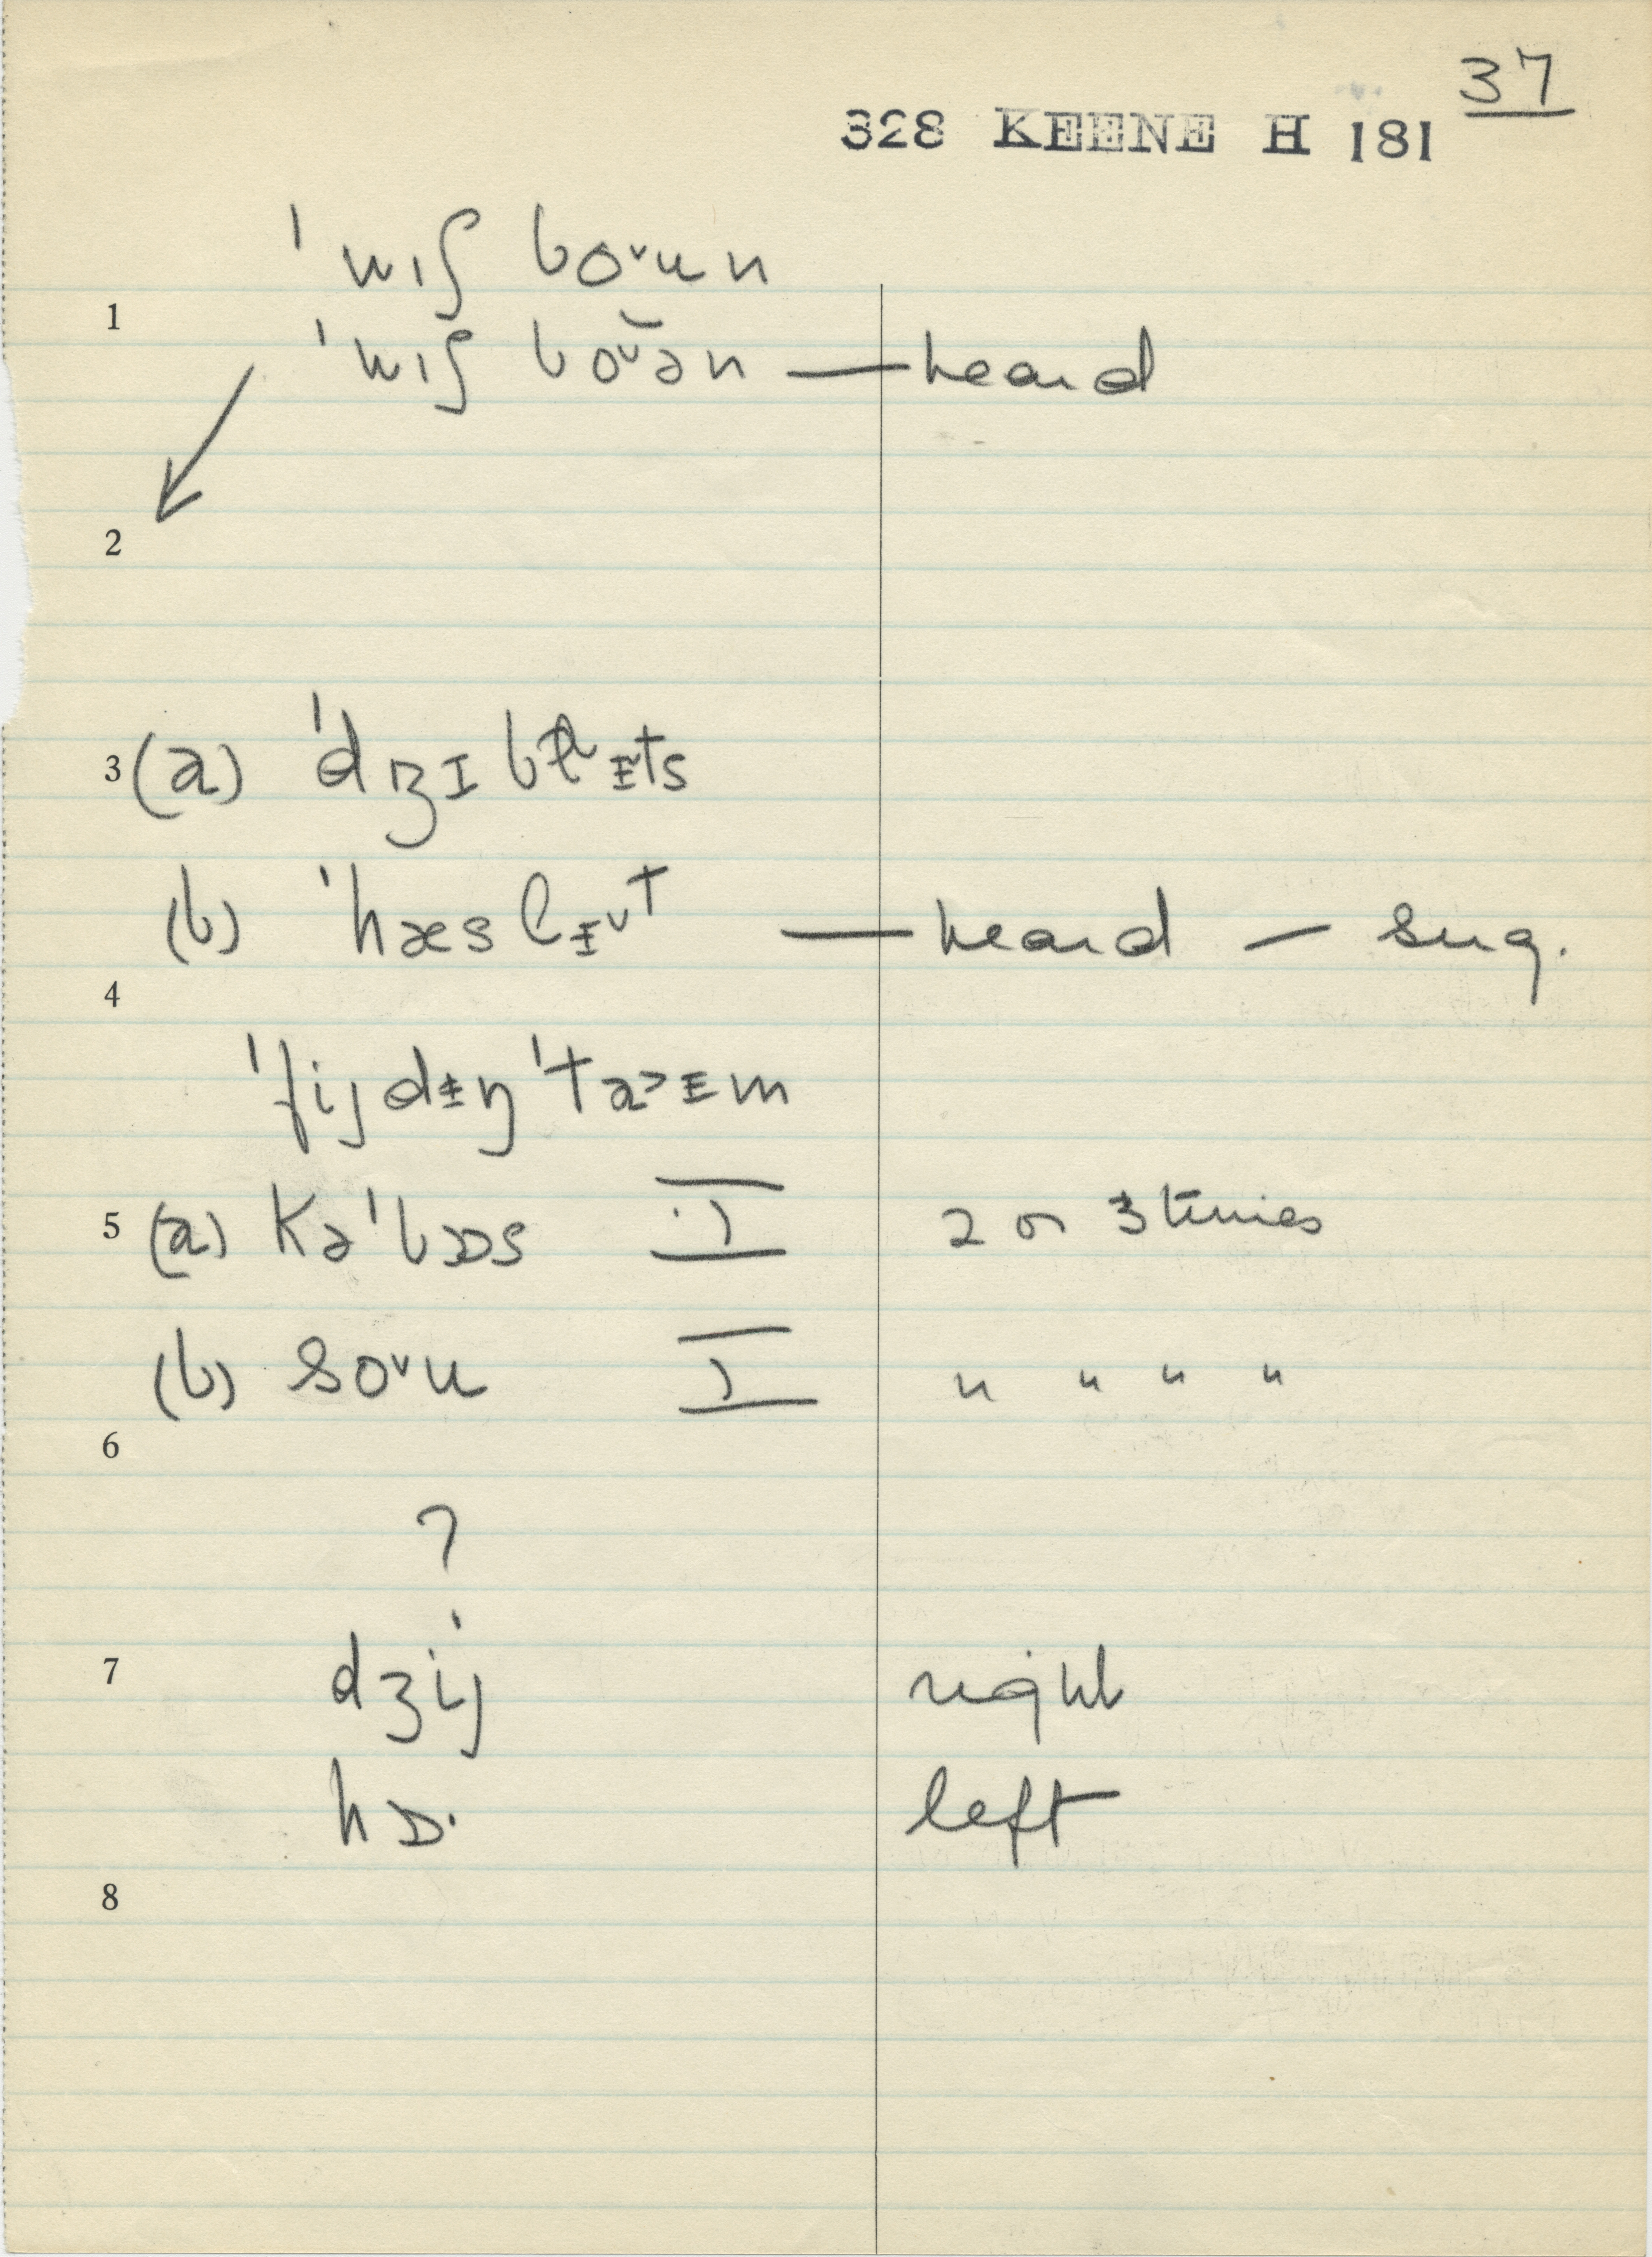 37
328 KEENE H 181
ˈwɪʃ boˇun
1
ˈwɪʃ boˇən — heard
2
3 (a) ˈdʒɪ
(b) ˈhæslɪˇt — heard — sug.
4
ˈfijdɪŋ ˈtaɪɪm
5 (a) Kəˈbɒs I 2 or 3 times
(b) soˇu I " " " "
6
?
7 dʒij right
hɒ· left
8